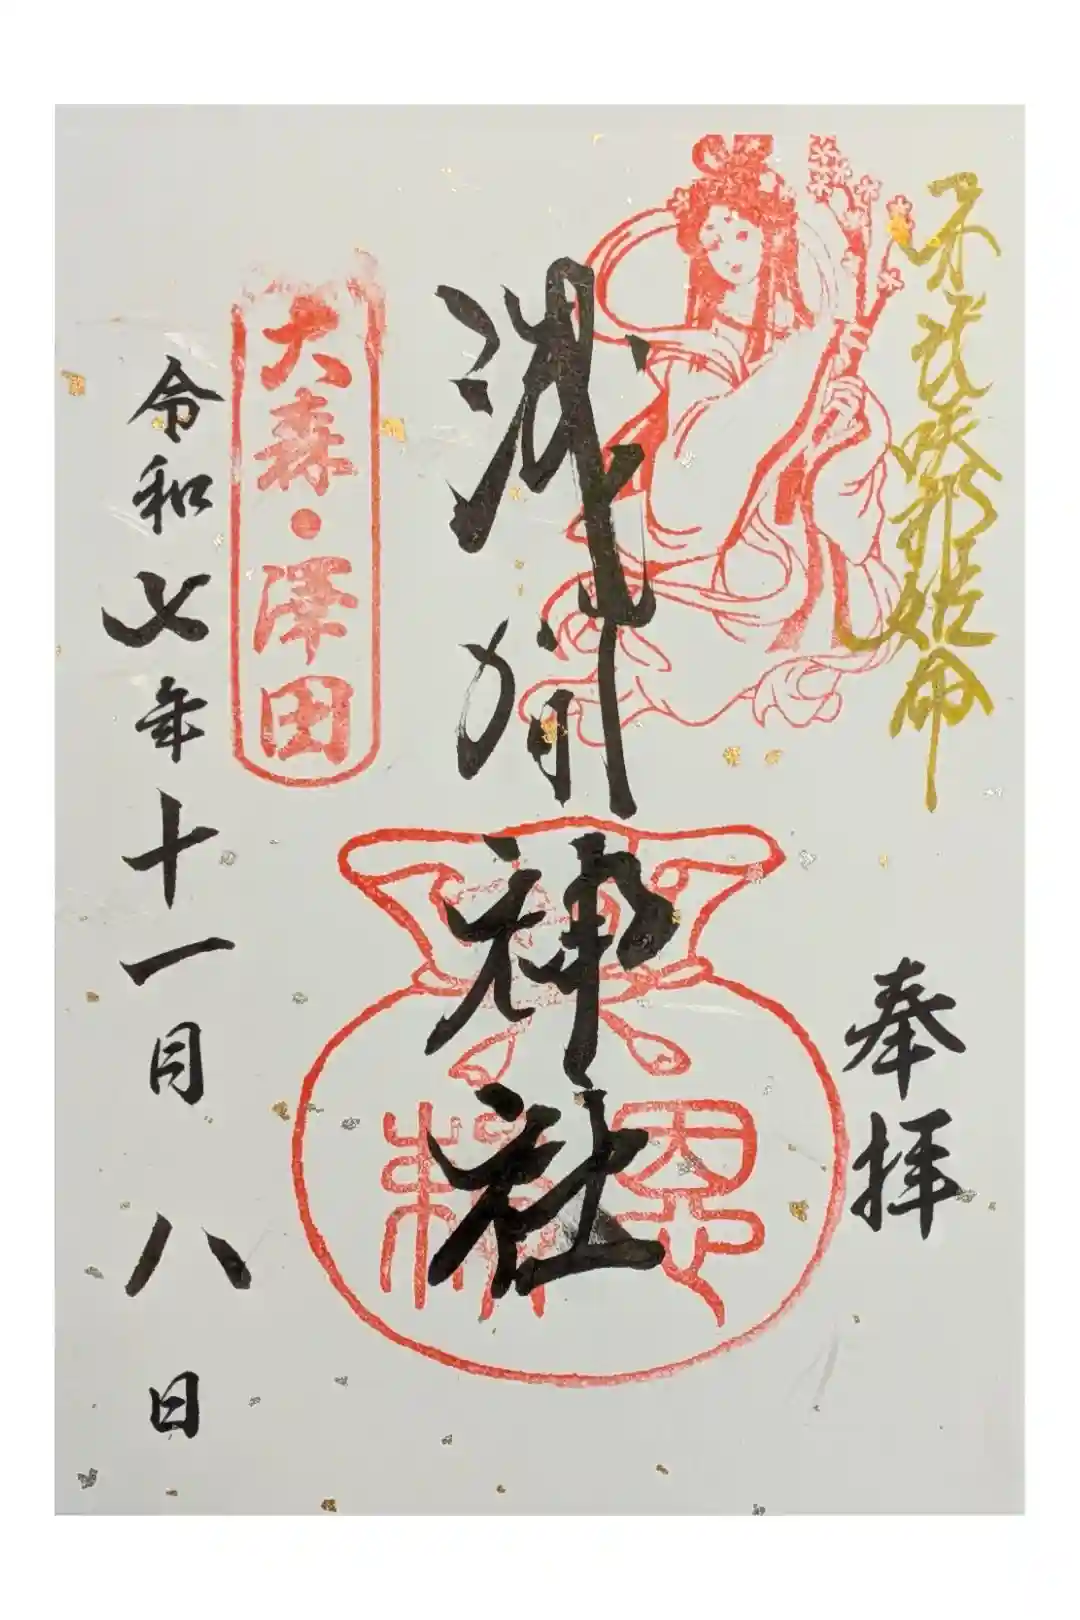 木花咲耶姫命
奉拝
浅間神社
大森・澤田
令和七年十一月八日